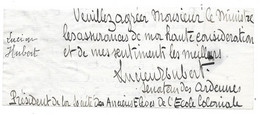 Veuillez agréer Monsieur le Ministre
les assurances de ma haute considération
et de mes sentiments les meilleurs
Lucien
Hubert
Lucien Hubert
Senateur des Ardennes
Président de la Société des Anciens Elèves de l'Ecole Coloniale